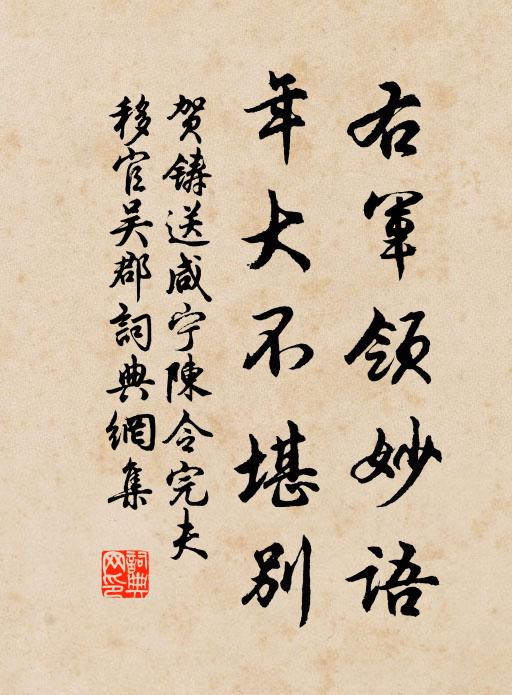 右軍領妙語
年大不堪別
賀鑄送咸宁陳令完夫
移官吴郡詞典網集
詞典网印